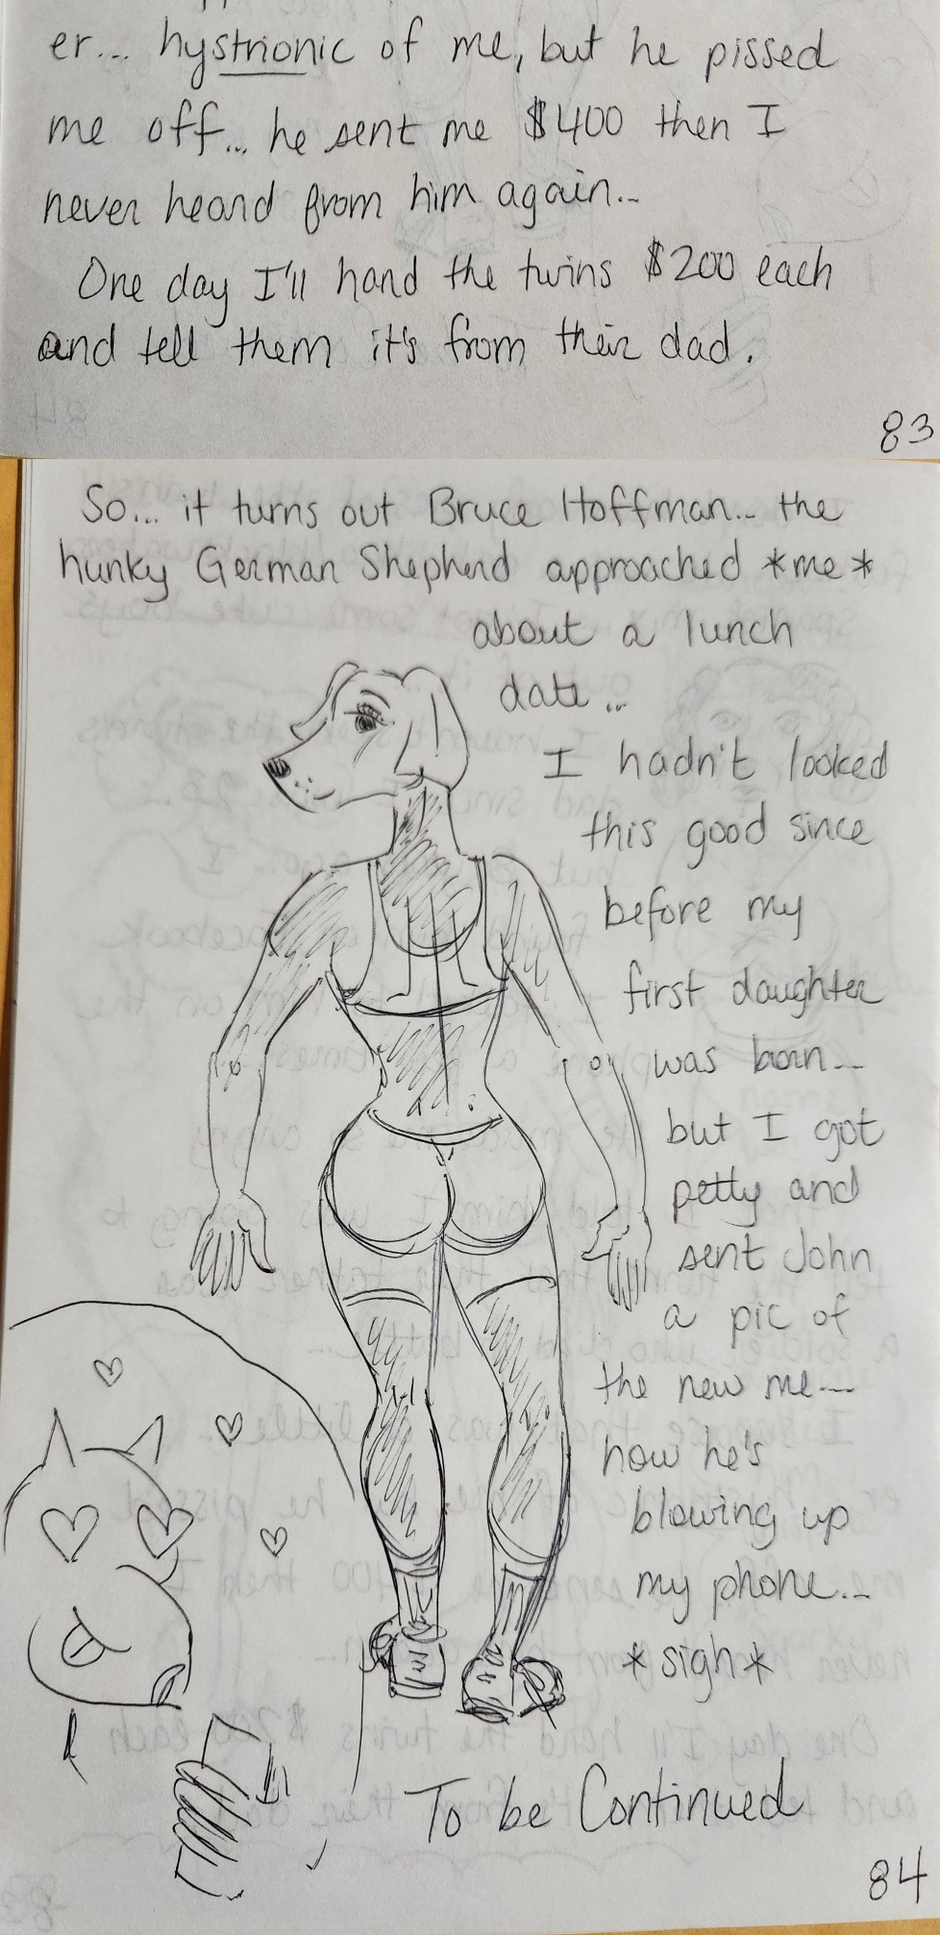 er... hystrionic of me, but he pissed
me off... he sent me $400 then I
never heard from him again...
One day I'll hand the twins $200 each
and tell them it's from their dad.
83
So... it turns out Bruce Hoffman... the
hunky German Shepherd approached *me*
about a lunch
date...
I hadn't looked
this good since
before my
first daughter
was born...
but I got
petty and
sent John
a pic of
the new me...
now he's
blowing up
my phone...
*sigh*
To be Continued
84